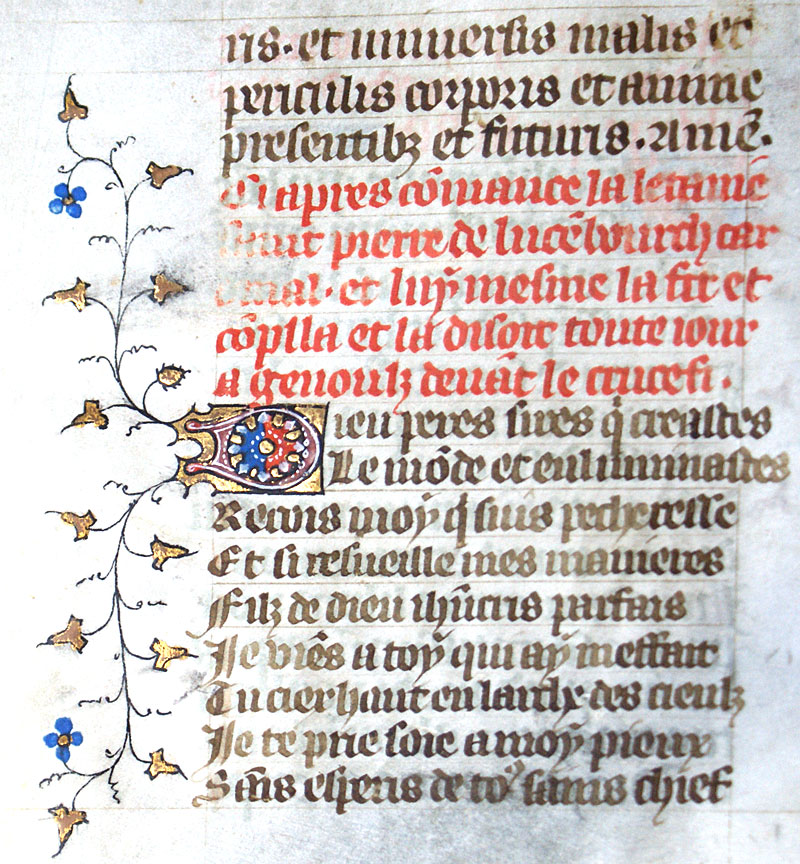 ris. et universis malis et
periculis corporis et anime
presentibꝫ et futuris. Amē.
Ci apres cōmance la letanie
saint pierre de lucēbourch car
dinal. et luy mesme la fit et
cōpila et la disoit toute iour
a genoulꝫ devāt le crucefi.
Dieu peres sires q̄ creastes
Le mōde et enluminastes
Recius moy q̄ suis pecheresse
Et si resueille mes manieres
Filꝫ de dieu ihūcris parfais
Je viēs a toy qui ay meffait
Tu cier haut en larche des cieulꝫ
Je te prie soie a moy pieux
Sāīs esperis de toꝰ sains chief